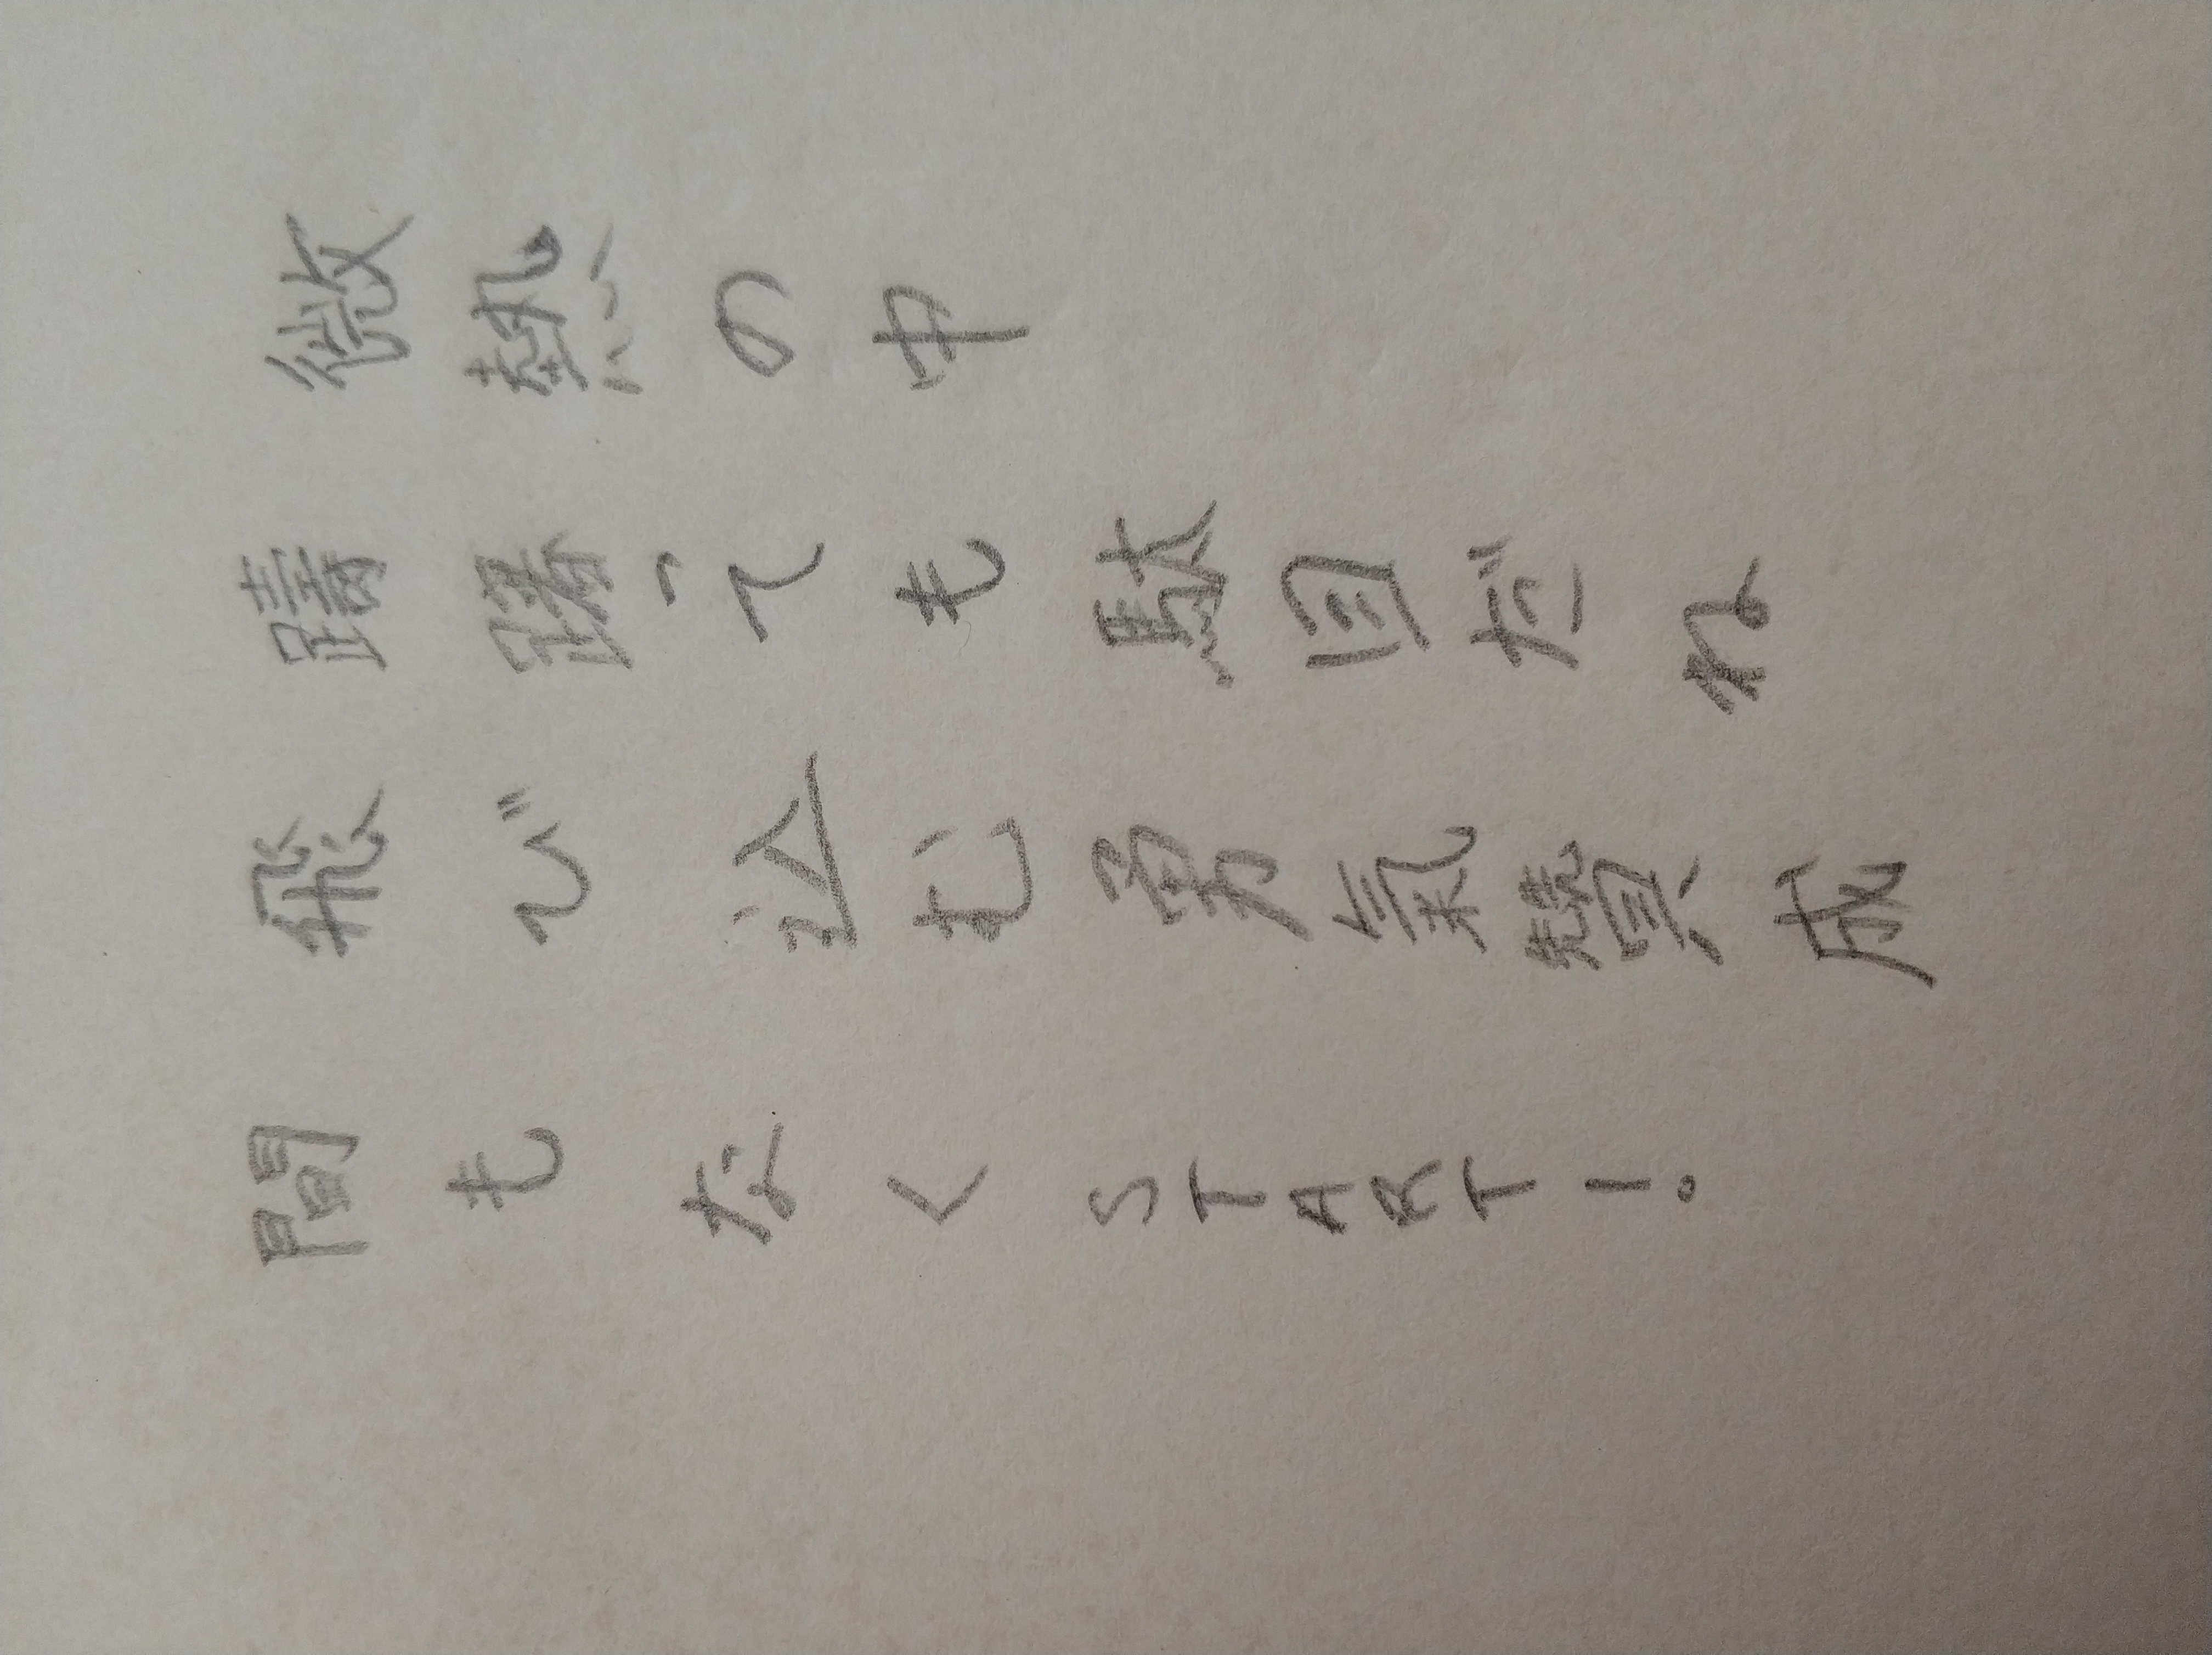 微熱の中
躊躇っても駄目だね
飛び込む勇氣贊成
間もなくSTART!